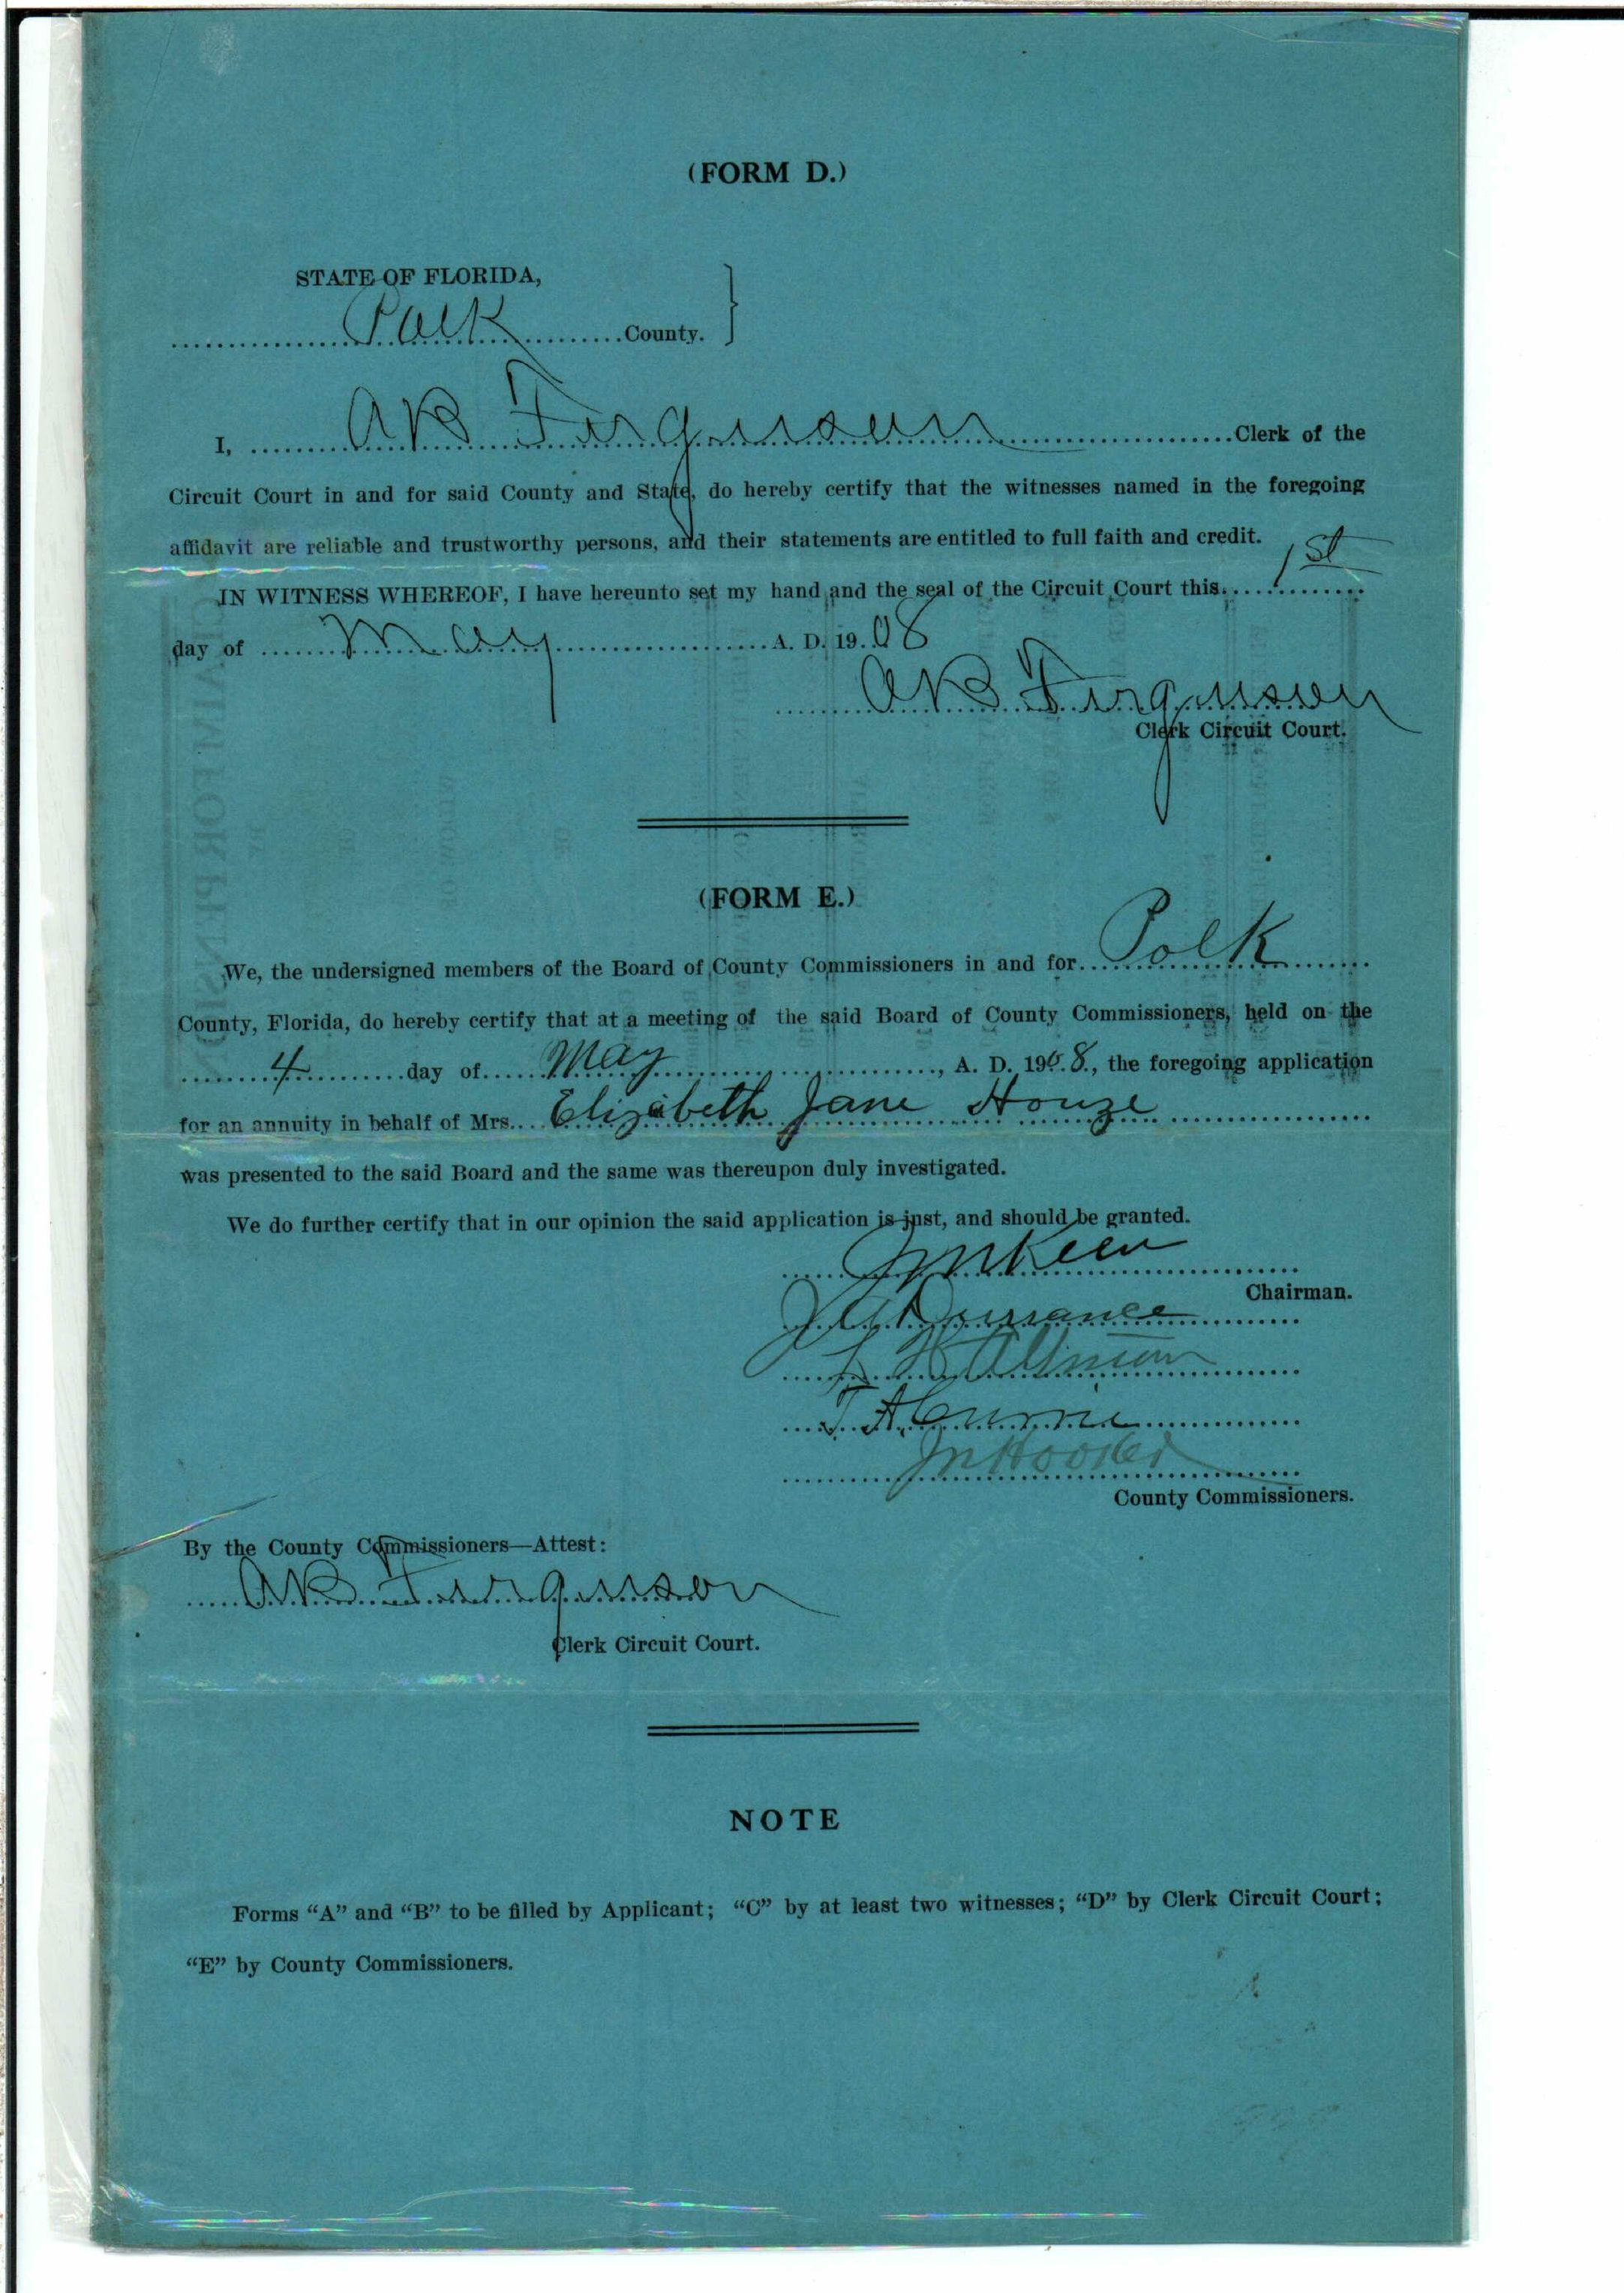 (FORM D.)
STATE OF FLORIDA,
Polk County.
I, A B Ferguson Clerk of the
Circuit Court in and for said County and State, do hereby certify that the witnesses named in the foregoing
affidavit are reliable and trustworthy persons, and their statements are entitled to full faith and credit.
IN WITNESS WHEREOF, I have hereunto set my hand and the seal of the Circuit Court this 1st
day of May A. D. 1908
A B Ferguson
Clerk Circuit Court.
(FORM E.)
We, the undersigned members of the Board of County Commissioners in and for Polk
County, Florida, do hereby certify that at a meeting of the said Board of County Commissioners, held on the
4 day of May, A. D. 1908., the foregoing application
for an annuity in behalf of Mrs. Elizabeth Jane Houze
was presented to the said Board and the same was thereupon duly investigated.
We do further certify that in our opinion the said application is just, and should be granted.
J M Keen
Chairman.
Durrance
Altman
T. A. Currie
J M Hooker
County Commissioners.
By the County Commissioners—Attest:
A B Ferguson
Clerk Circuit Court.
NOTE
Forms "A" and "B" to be filled by Applicant; "C" by at least two witnesses; "D" by Clerk Circuit Court;
"E" by County Commissioners.